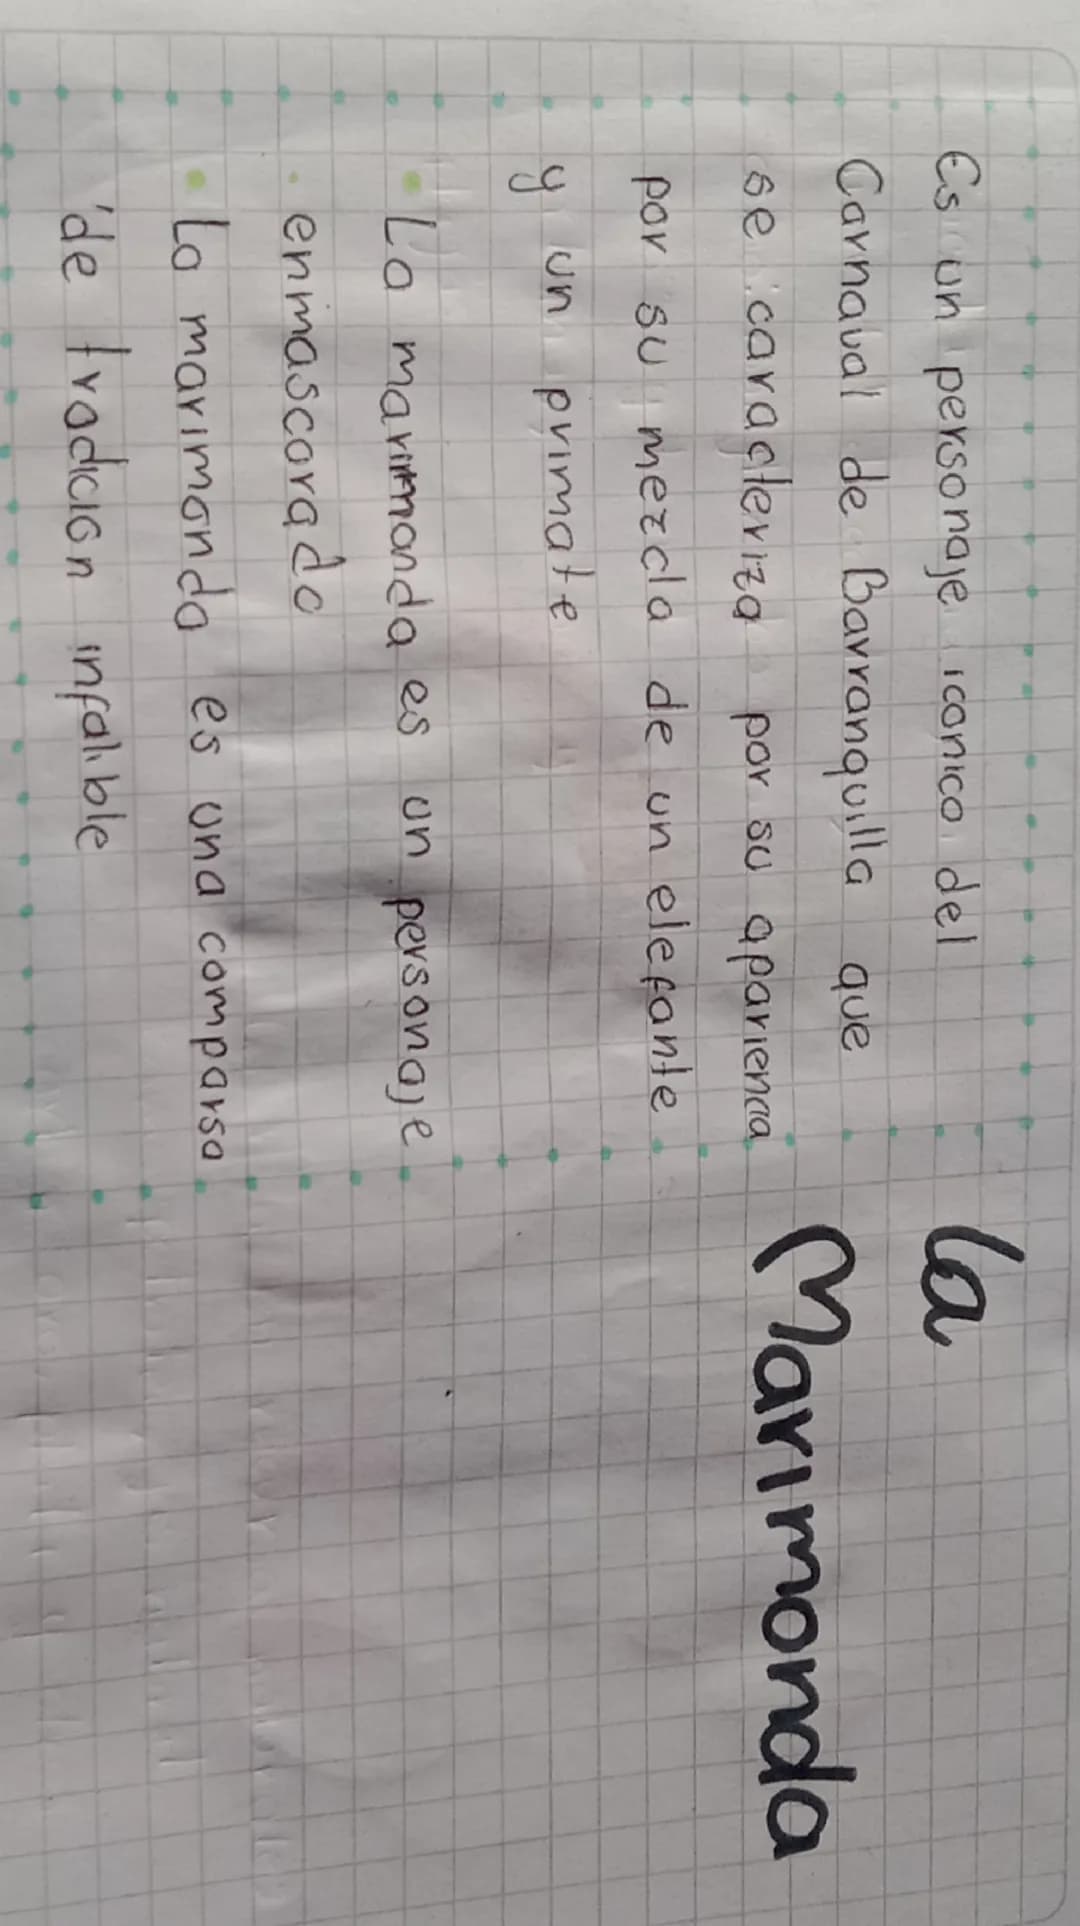 la
Marimonda
Es un personaje iconico del
Carnaval de Barranquilla que
se caracteriza por su apariencia
por su mezcla de un elefante
y un primate
• La marimonda es un personaje
• enmascarado
• La marimonda es una comparsa
de tradicion infalible